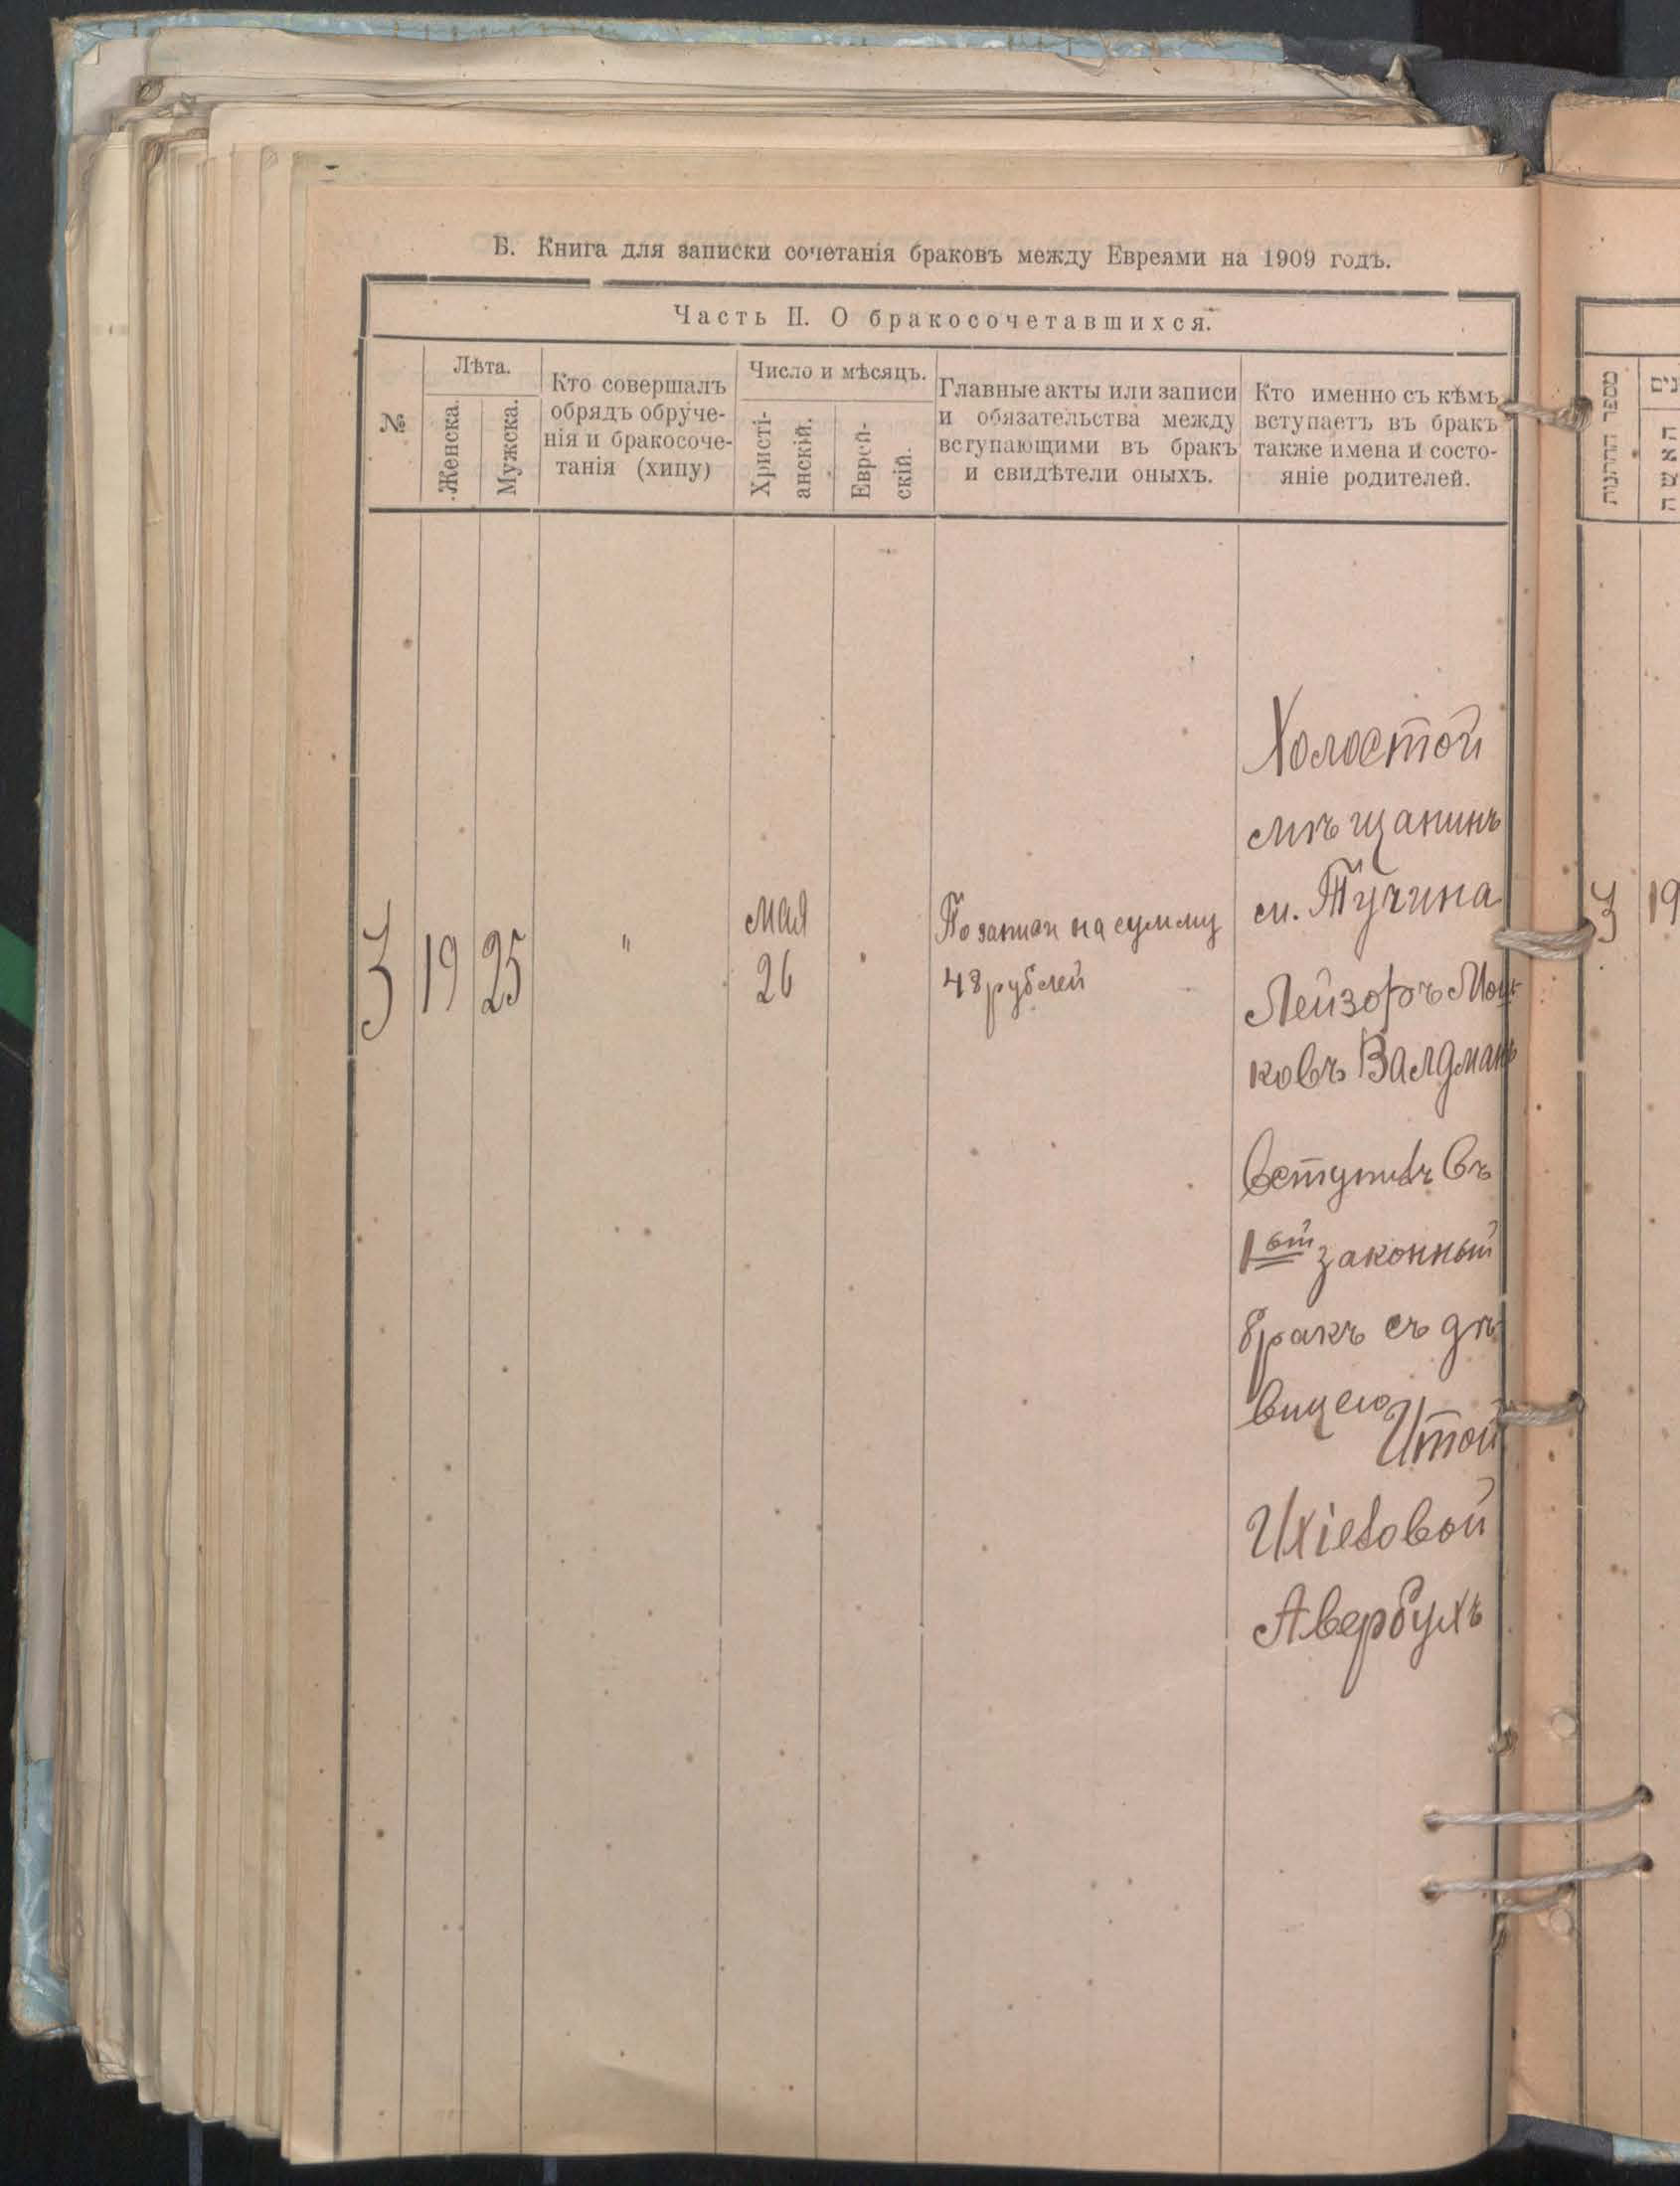 Б. Книга для записки сочетанія браковъ между Евреями на 1909 годъ.
Часть II. О бракосочетавшихся.
№
Лѣта.
Женска.
Мужска.
Кто совершалъ
обрядъ обруче-
нія и бракосоче-
танія (хипу)
Число и мѣсяцъ.
Христі-
анскій.
Еврей-
скій.
Главные акты или записи
и обязательства между
вступающими въ бракъ
и свидѣтели оныхъ.
Кто именно съ кѣмъ
вступаетъ въ бракъ
также имена и состо-
яніе родителей.
3
19
25
"
Мая
26
"
По записи на сумму
48 рублей
Холостой
мѣщанинъ
м. Тучина
Лейзоръ Мош-
ковъ Валдманъ
вступилъ въ
1ый законный
бракъ съ дѣ
вицею
Итой
Ихіеловой
Авербухъ
מספר החתונות
האשה
3
19